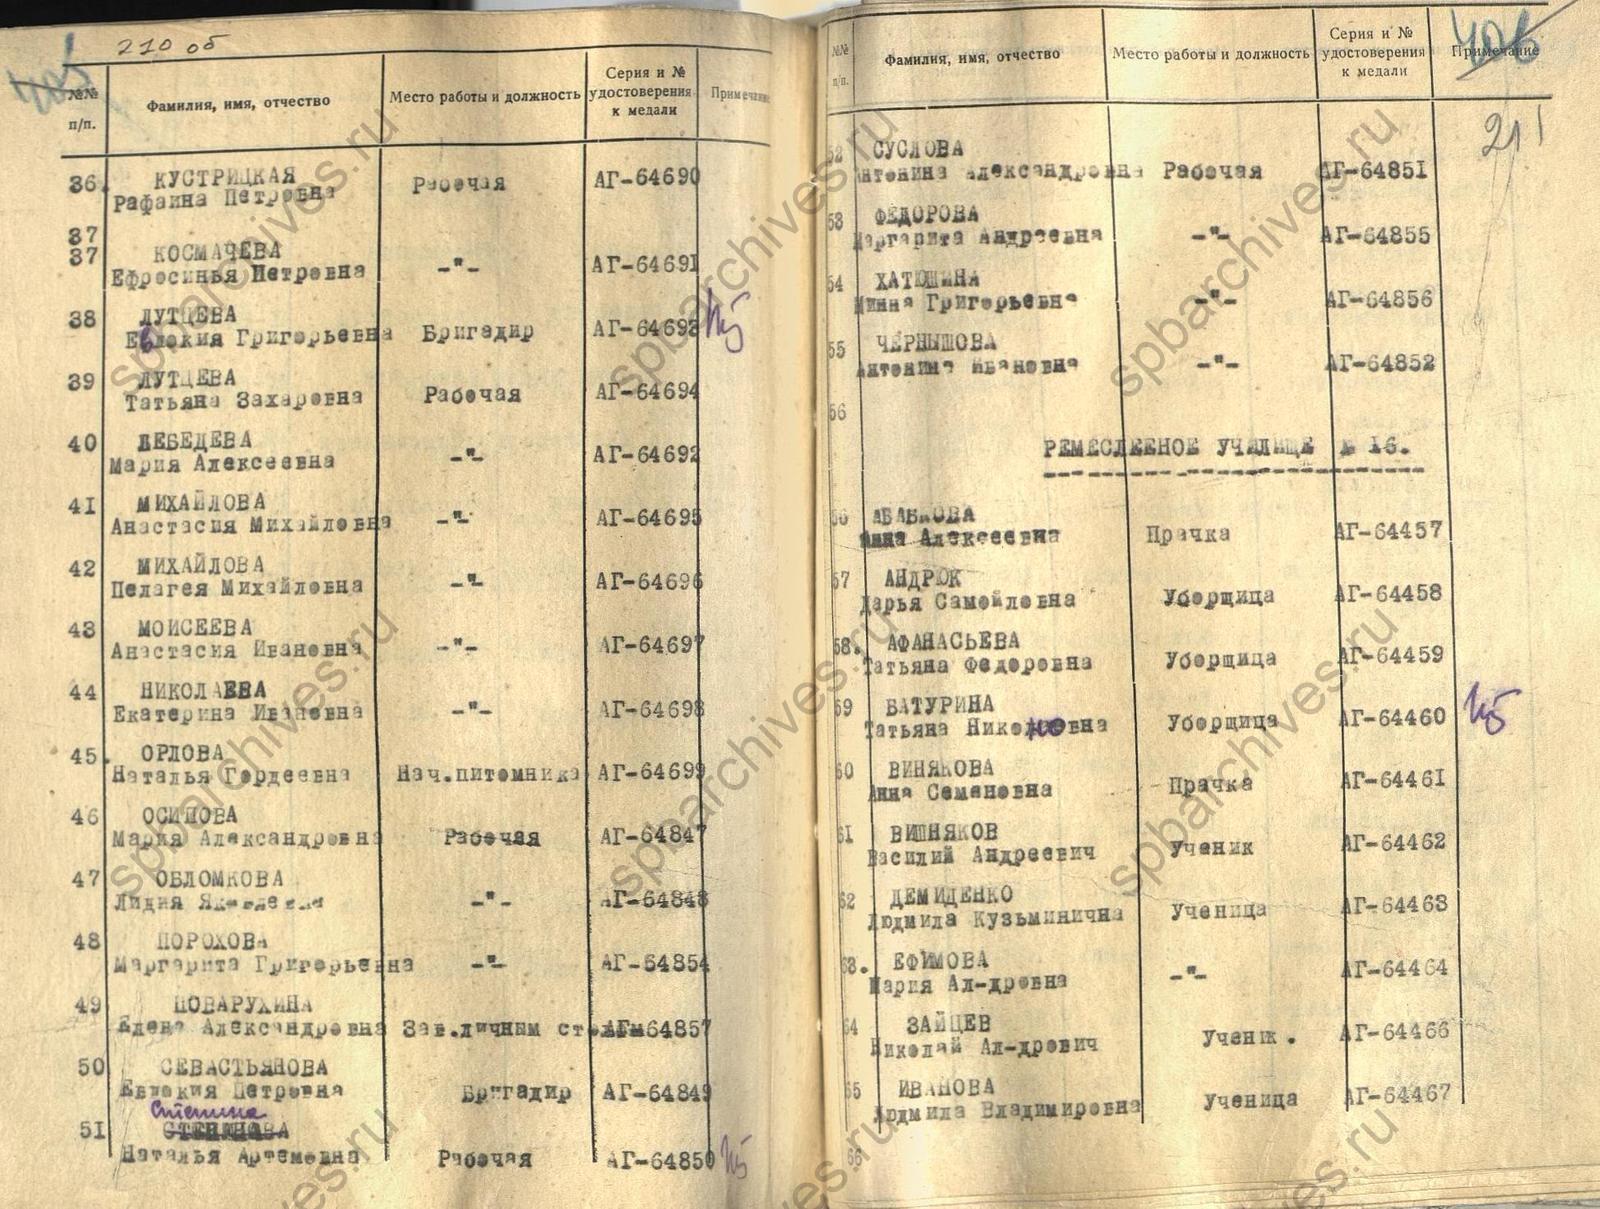 210 об
№№ п/п. Фамилия, имя, отчество Место работы и должность Серия и № удостоверения к медали Примечание
36. КУСТРИЦКАЯ
Рафаина Петровна Рабочая АГ-64690
37
37 КОСМАЧЕВА
Ефросинья Петровна -"- АГ-64691
38 ЛУТЦЕВА
Евдокия Григорьевна Бригадир АГ-64693
39 ЛУТЦЕВА
Татьяна Захаровна Рабочая АГ-64694
40 ЛЕБЕДЕВА
Мария Алексеевна -"- АГ-64692
41 МИХАЙЛОВА
Анастасия Михайловна -"- АГ-64695
42 МИХАЙЛОВА
Пелагея Михайловна -"- АГ-64696
43 МОИСЕЕВА
Анастасия Ивановна -"- АГ-64697
44 НИКОЛАЕВА
Екатерина Ивановна -"- АГ-64698
45. ОРЛОВА
Наталья Гордеевна Нач.питомника АГ-64699
46 ОСИПОВА
Мария Александровна Рабочая АГ-64847
47 ОБЛОМКОВА
Лидия Яковлевна -"- АГ-64848
48 ПОРОХОВА
Маргарита Григорьевна -"- АГ-64854
49 ПОВАРУХИНА
Елена Александровна Зав.личным столом АГ-64857
50 СЕВАСТЬЯНОВА
Евдокия Петровна Бригадир АГ-64849
Степина
51 СТЕПАНОВА
Наталья Артемовна Рабочая АГ-64850
406
№№ п/п. Фамилия, имя, отчество Место работы и должность Серия и № удостоверения к медали Примечание
211
52 СУСЛОВА
Антонина Александровна Рабочая АГ-64851
53 ФЕДОРОВА
Маргарита Андреевна -"- АГ-64855
54 ХАТЮШИНА
Минна Григорьевна -"- АГ-64856
55 ЧЕРНЫШОВА
Антонина Ивановна -"- АГ-64852
56
РЕМЕСЛЕЕНОЕ УЧИЛИЩЕ № 16.
56 АБАБКОВА
Анна Алексеевна Прачка АГ-64457
57 АНДРЮК
Дарья Самойловна Уборщица АГ-64458
58. АФАНАСЬЕВА
Татьяна Федоровна Уборщица АГ-64459
59 БАТУРИНА
Татьяна Никоновна Уборщица АГ-64460
60 ВИНЯКОВА
Анна Семеновна Прачка АГ-64461
61 ВИШНЯКОВ
Василий Андреевич Ученик АГ-64462
62 ДЕМИДЕНКО
Людмила Кузьминична Ученица АГ-64463
63. ЕФИМОВА
Мария Ал-дровна -"- АГ-64464
64 ЗАЙЦЕВ
Николай Ал-дрович Ученик. АГ-64466
65 ИВАНОВА
Людмила Владимировна Ученица АГ-64467
66
spbarchives.ru